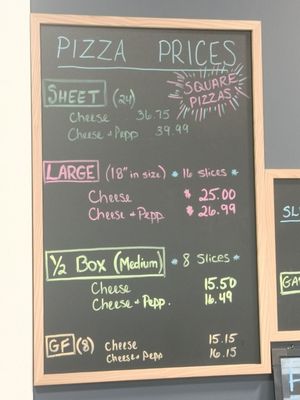 PIZZA PRICES
SQUARE
PIZZAS
SHEET (24)
Cheese 36.75
Cheese + Pepp 39.99
LARGE (18" in size) * 16 slices *
Cheese $ 25.00
Cheese + Pepp. $ 26.99
1/2 Box (Medium) * 8 Slices *
Cheese 15.50
Cheese + Pepp. 16.49
GF (8) Cheese 15.15
Cheese + Pepp 16.15
SL
GA
F